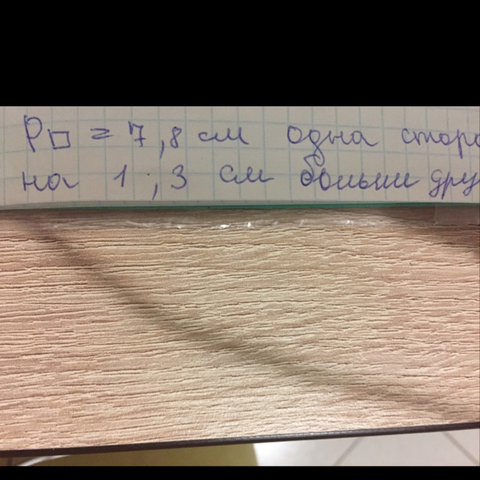 P□ = 7,8 см одна сторо
на 1,3 см больши дру